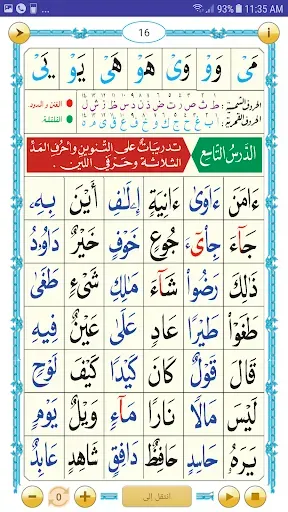 93% 11:35 AM
16
مَىْ وَوْ وَىْ هَوْ هَىْ يَوْ يَىْ
الحروف الشمسية: ط ث ص ر ت ض ذ ن د س ظ ز ش ل الغنن و المدود
الحروف القمرية: القلقلة
الدَّرْسُ التَّاسِع تدريبات على التنوين وأحرف المد
الثلاثة وحرفي اللين .
ءَامَنَ ءَاوَىٰ ءَانِيَةٍ إِۦلَٰفِ أَتَيْنَ بِهِۦ
جَآءَ جِاْىٓءَ جُوعٍ خَوْفٍ خَيْرٌ دَاوُۥدُ
ذَٰلِكَ رَضُواْ شَآءَ مَٰلِكِ شَىْءٍ طَغَىٰ
طَغَوْاْ طَيْرًا عَادٍ عَلَىٰ عَيْنٌ فِيهِ
قَالَ قَوْلٌ كَانَ كَيْدًا كَيْفَ لَوْحٍ
لَيْسَ مَالًا نَارًا مَآءٍ وَيْلٌ يَوْمٍ
يَرَهُۥ حَامِدٍ حَافِظٌ دَافِقٍ شَاهِدٍ عَابِدٌ
0 انتقل إلى